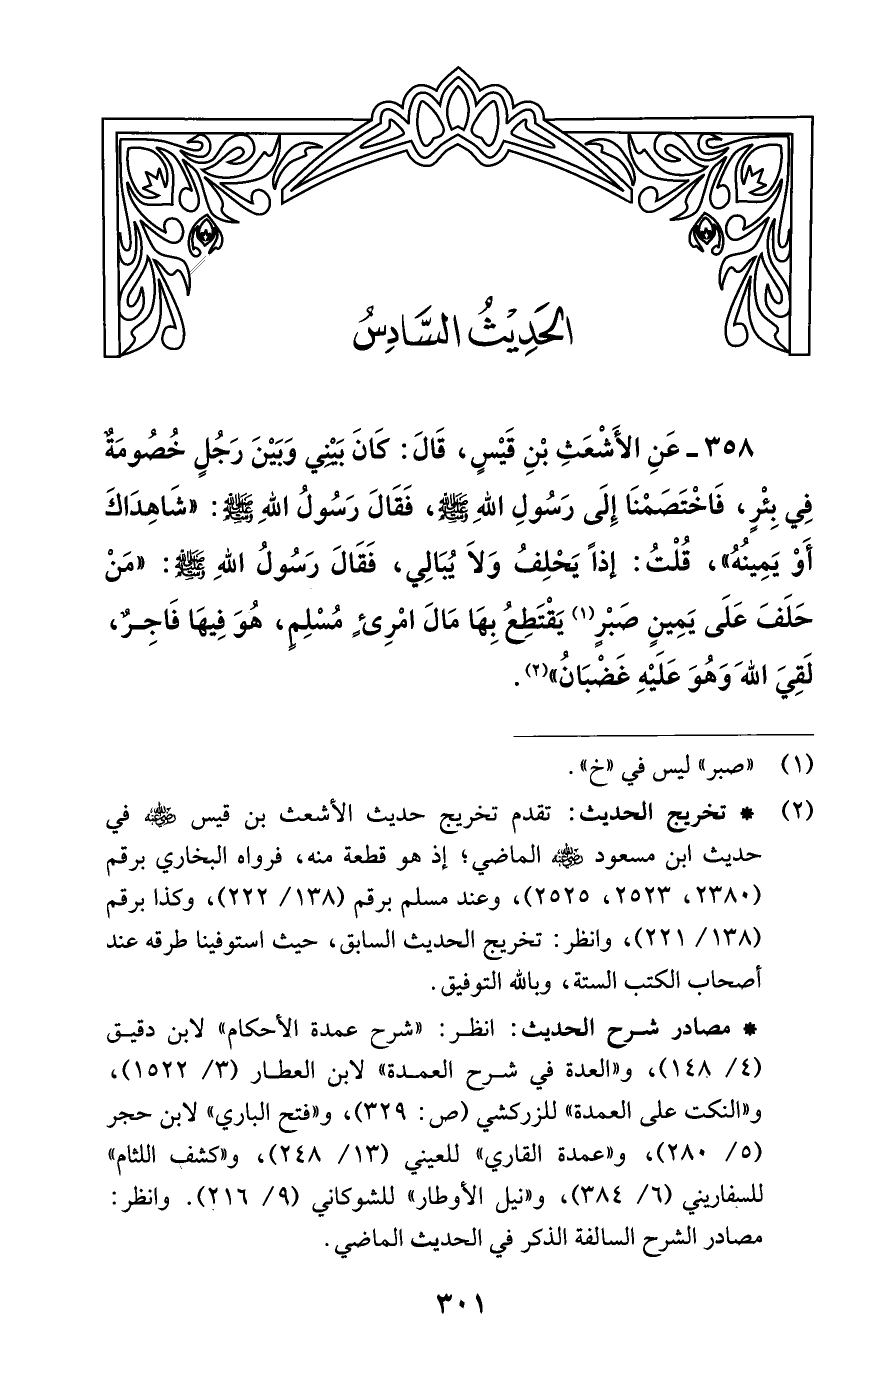 الحَدِيْثُ السَّادِسُ
٣٥٨ ـ عَنِ الأَشْعَثِ بْنِ قَيْسٍ، قَالَ: كَانَ بَيْنِي وَبَيْنَ رَجُلٍ خُصُومَةٌ
فِي بِئْرٍ، فَاخْتَصَمْنَا إِلَى رَسُولِ اللهِ ﷺ، فَقَالَ رَسُولُ اللهِ ﷺ: «شَاهِدَاكَ
أَوْ يَمِينُهُ»، قُلْتُ: إذاً يَحْلِفُ وَلاَ يُبَالِي، فَقَالَ رَسُولُ اللهِ ﷺ: «مَنْ
حَلَفَ عَلَى يَمِينِ صَبْرٍ(١) يَقْتَطِعُ بِهَا مَالَ امْرِئٍ مُسْلِمٍ، هُوَ فِيهَا فَاجِرٌ،
لَقِيَ اللهَ وَهُوَ عَلَيْهِ غَضْبَانُ»(٢).
(١) «صبر» ليس في «خ».
(٢) * تخريج الحديث: تقدم تخريج حديث الأشعث بن قيس رضي الله عنه في
حديث ابن مسعود رضي الله عنه الماضي؛ إذ هو قطعة منه، فرواه البخاري برقم
(٢٣٨٠، ٢٥٢٣، ٢٥٢٥)، وعند مسلم برقم (١٣٨/ ٢٢٢)، وكذا برقم
(١٣٨/ ٢٢١)، وانظر: تخريج الحديث السابق، حيث استوفينا طرقه عند
أصحاب الكتب الستة، وبالله التوفيق.
* مصادر شرح الحديث: انظر: «شرح عمدة الأحكام» لابن دقيق
(٤/ ١٤٨)، و«العدة في شرح العمدة» لابن العطار (٣/ ١٥٢٢)،
و«النكت على العمدة» للزركشي (ص: ٣٢٩)، و«فتح الباري» لابن حجر
(٥/ ٢٨٠)، و«عمدة القاري» للعيني (١٣/ ٢٤٨)، و«كشف اللثام»
للسفاريني (٦/ ٣٨٤)، و«نيل الأوطار» للشوكاني (٩/ ٢١٦). وانظر:
مصادر الشرح السالفة الذكر في الحديث الماضي.
٣٠١